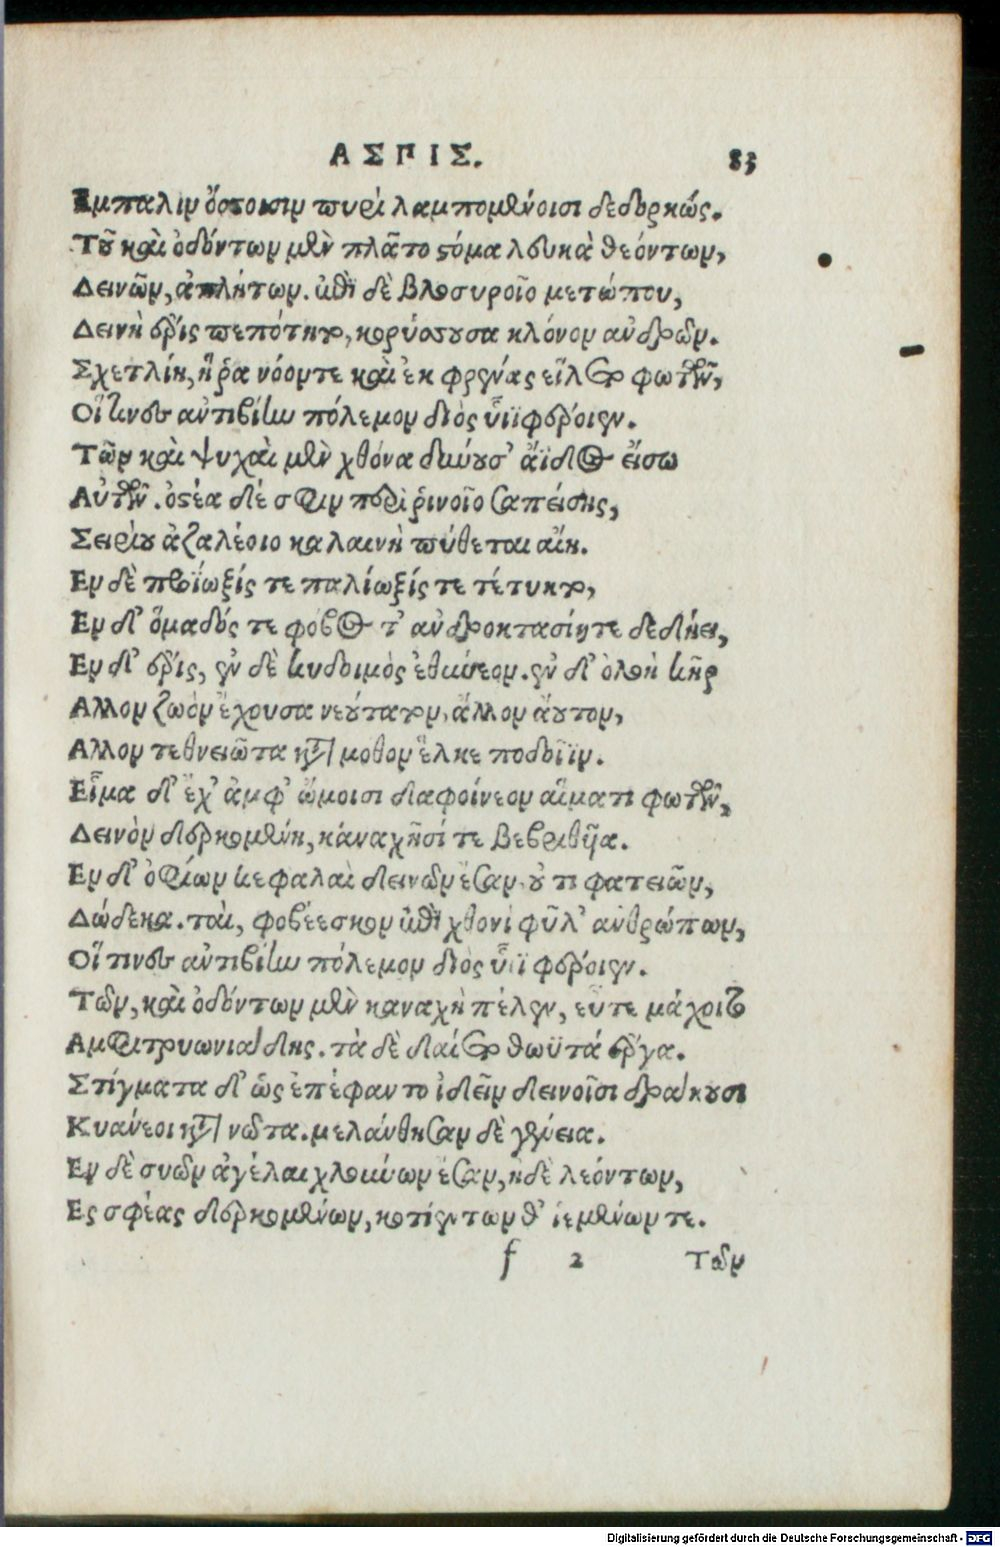 ΑΣΠΙΣ. 83
Εμπαλιν ὄσσοισιν πυρὶ λαμπομένοισι δεδορκώς.
Τοῦ καὶ ὀδόντων μὲν πλῆτο στόμα λευκὰ θεόντων,
Δεινῶν, ἀπλήτων. ἐπὶ δὲ βλοσυροῖο μετώπου,
Δεινὴ ἔρις πεπότητο, κορύσσουσα κλόνον ἀνδρῶν.
Σχετλίη, ἥ ῥα νόον τε καὶ ἐκ φρένας εἵλετο φωτῶν,
Οἵ τινες ἀντιβίην πόλεμον διὸς υἷϊ φέροιεν.
Τῶν καὶ ψυχαὶ μὲν χθόνα δύνουσ' ἄϊδος εἴσω
Αὐτῶν. ὀστέα δέ σφιν περὶ ῥινοῖο σαπείσης,
Σειρίου ἀζαλέοιο κελαινῇ πύθεται αἴῃ.
Εν δὲ προΐωξίς τε παλίωξίς τε τέτυκτο,
Εν δ' ὅμαδός τε φόβος τ' ἀνδροκτασίη τε δεδήει,
Εν δ' ἔρις, ἐν δὲ κυδοιμὸς ἐθύνεον. ἐν δ' ὀλοὴ κῆρ
Αλλον ζωὸν ἔχουσα νεούτατον, ἄλλον ἄουτον,
Αλλον τεθνειῶτα κατὰ μόθον ἕλκε ποδοῖϊν.
Εἷμα δ' ἔχ' ἀμφ' ὤμοισι δαφοίνεον αἵματι φωτῶν,
Δεινὸν δερκομένη, καναχῇσί τε βεβριθυῖα.
Εν δ' ὀφίων κεφαλαὶ δεινῶν ἔσαν οὔ τι φατειῶν,
Δώδεκα. ταὶ, φοβέεσκον ἐπὶ χθονὶ φῦλ' ἀνθρώπων,
Οἵ τινες ἀντιβίην πόλεμον διὸς υἷϊ φέροιεν.
Τῶν, καὶ ὀδόντων μὲν καναχὴ πέλεν, εὖτε μάχοιτο
Αμφιτρυωνιάδης. τὰ δὲ δαίετο θωϋτὰ ἔργα.
Στίγματα δ' ὣς ἐπέφαντο ἰδεῖν δεινοῖσι δράκουσι
Κυάνεοι κατὰ νῶτα. μελάνθησαν δὲ γένεια.
Εν δὲ συῶν ἀγέλαι χλούνων ἔσαν, ἠδὲ λεόντων,
Ες σφέας δερκομένων, κοτεόντων θ' ἱεμένων τε.
f 2 Τῶν
Digitalisierung gefördert durch die Deutsche Forschungsgemeinschaft - DFG